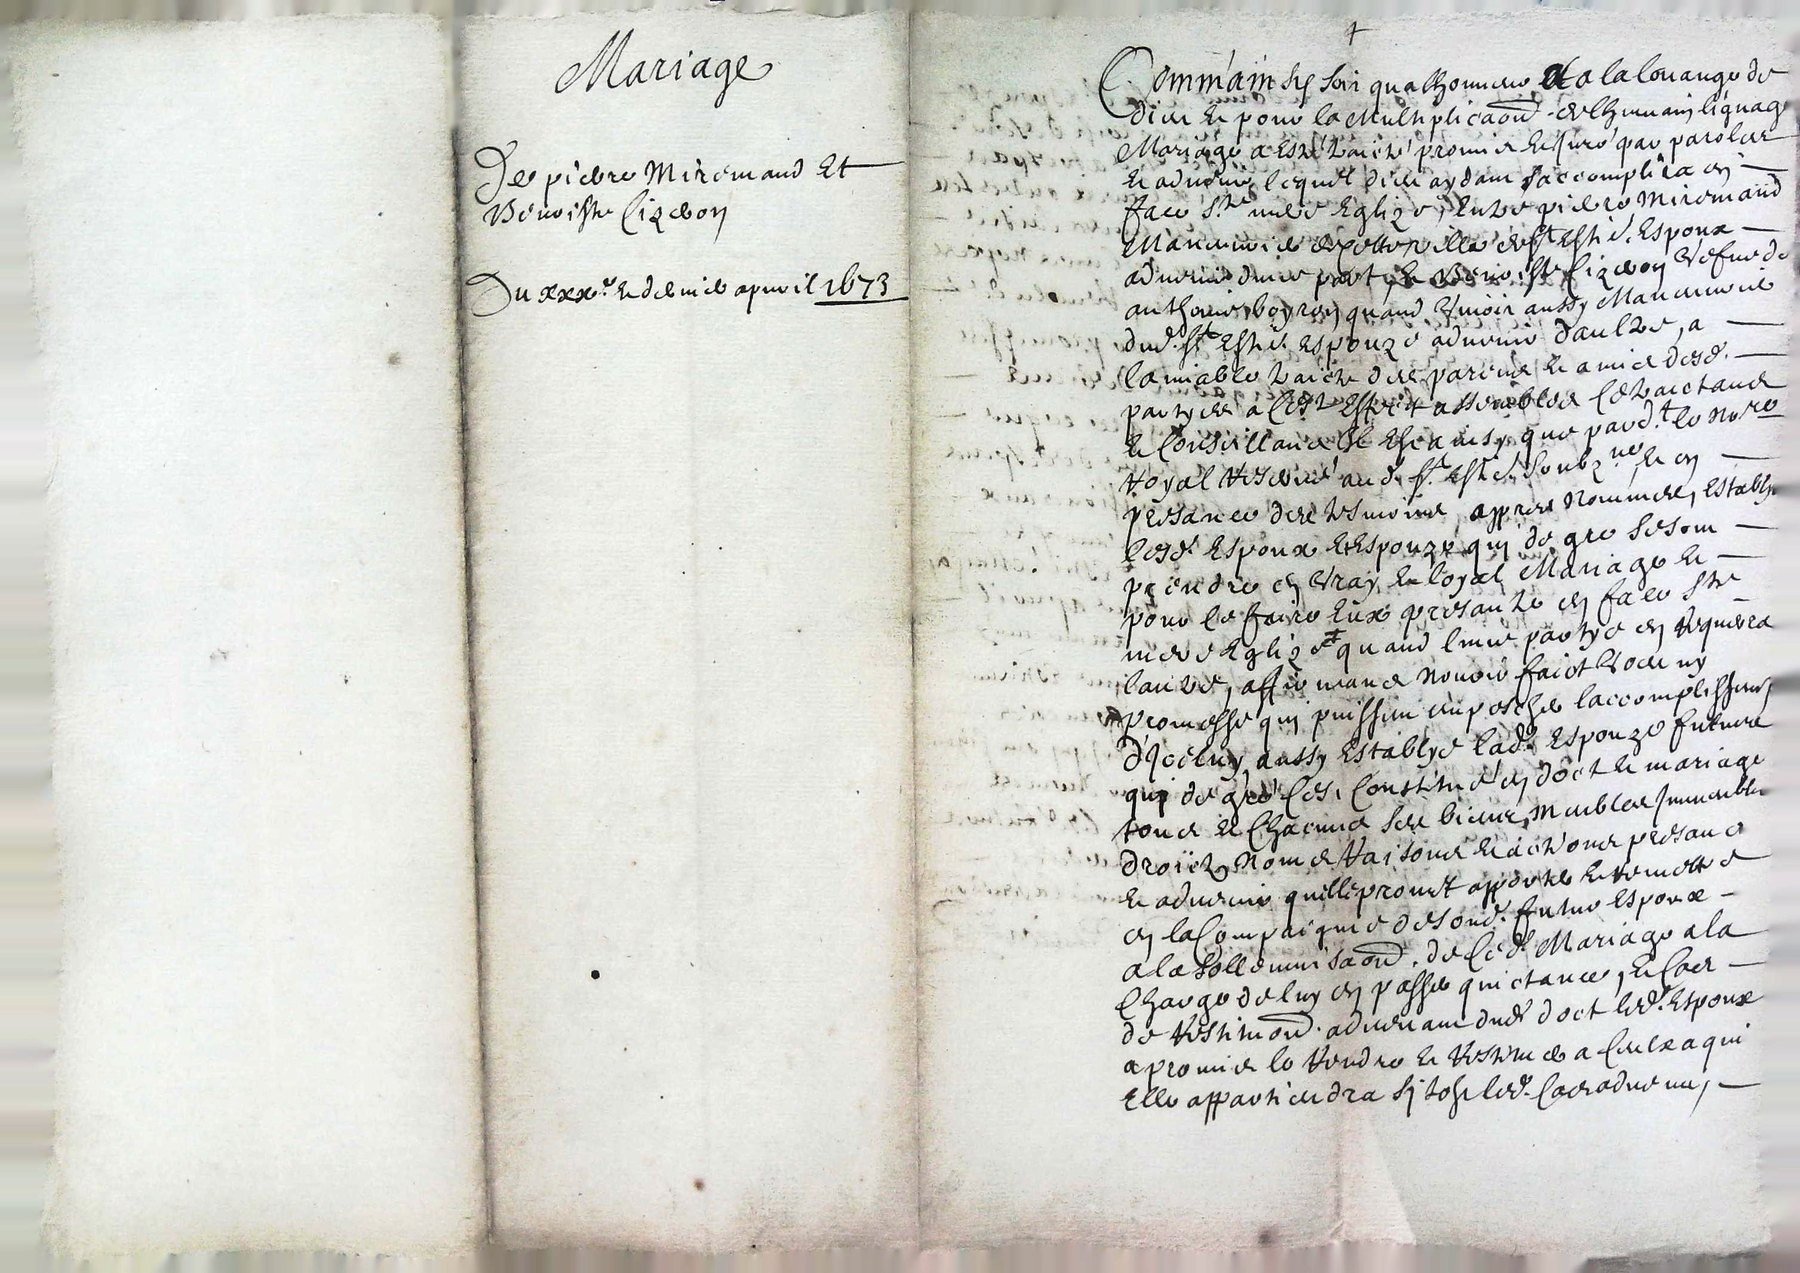 Mariage
De pierre Miremand Et
Benoiste Lizeon
Du xxxe. et dernier apvril 1673
+
Comm'ain sy soir qua lhonneur et a la louange de
dieu et pour la multiplicaon de lhumain lignage
Mariage a esté traicté promis et juré par parolles
de advenir lequel dieu aydant s'accomplira en
face ste mere Eglize, Entre pierre Miremand
st Esti. Espoux
advenir dune part et Benoiste Lizeon vefve de
anthoine quand vivoir aussy
dud. st Esti. espouze advenir daultre, a
lamiable traicté des parens et amis desd.
partyes a cest effect assemblés le traictans
et conseillans Et Est ainsy que pard.t le nore
royal reservé aud. st. Esti. soubzné et en
presance des tesmoins appres nommés, establys
lesd. Espoux et Espouze quy de gre se sont
prendre en vray et loyal Mariage et
pour ce faire eux presanter en face ste
mere Eglize # quand lune partye en requerra
lautre, affirmans navoir faict veu ny
promesse quy puissent empescher laccomplissement
d'Icelluy, aussy establye lad. Espouze future
quy de gré sest constitué en doct et mariage
tous et chacuns ses biens, meubles Immeubles
droictz, noms raisons et actions presans
et advenir quelle promet apporter et remettre
en la Compaignie de sond. futur Espoux
a la sollemnisaon. de ced. Mariage a la
charge de luy en passer quictance, et cas
de restituon. advenant dud. doct led. Espoux
a promis le rendre et restituer a ceulx a qui
elle appartiendra sy tost led. cas advenu,